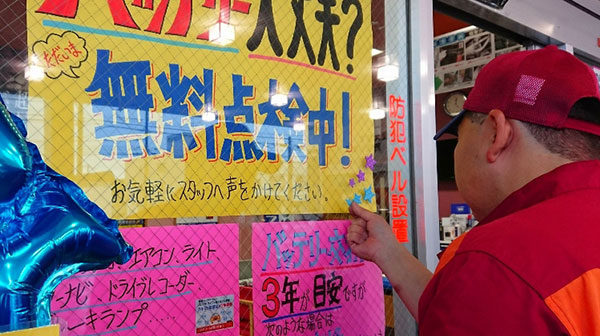 バッテリー大丈夫?
ただいま
無料点検中!
お気軽にスタッフへ声をかけてください。
防犯ベル設置
エアコン、ライト
ナビ、ドライブレコーダー
キランプ.....
3年が目安ですが
次のような場合は